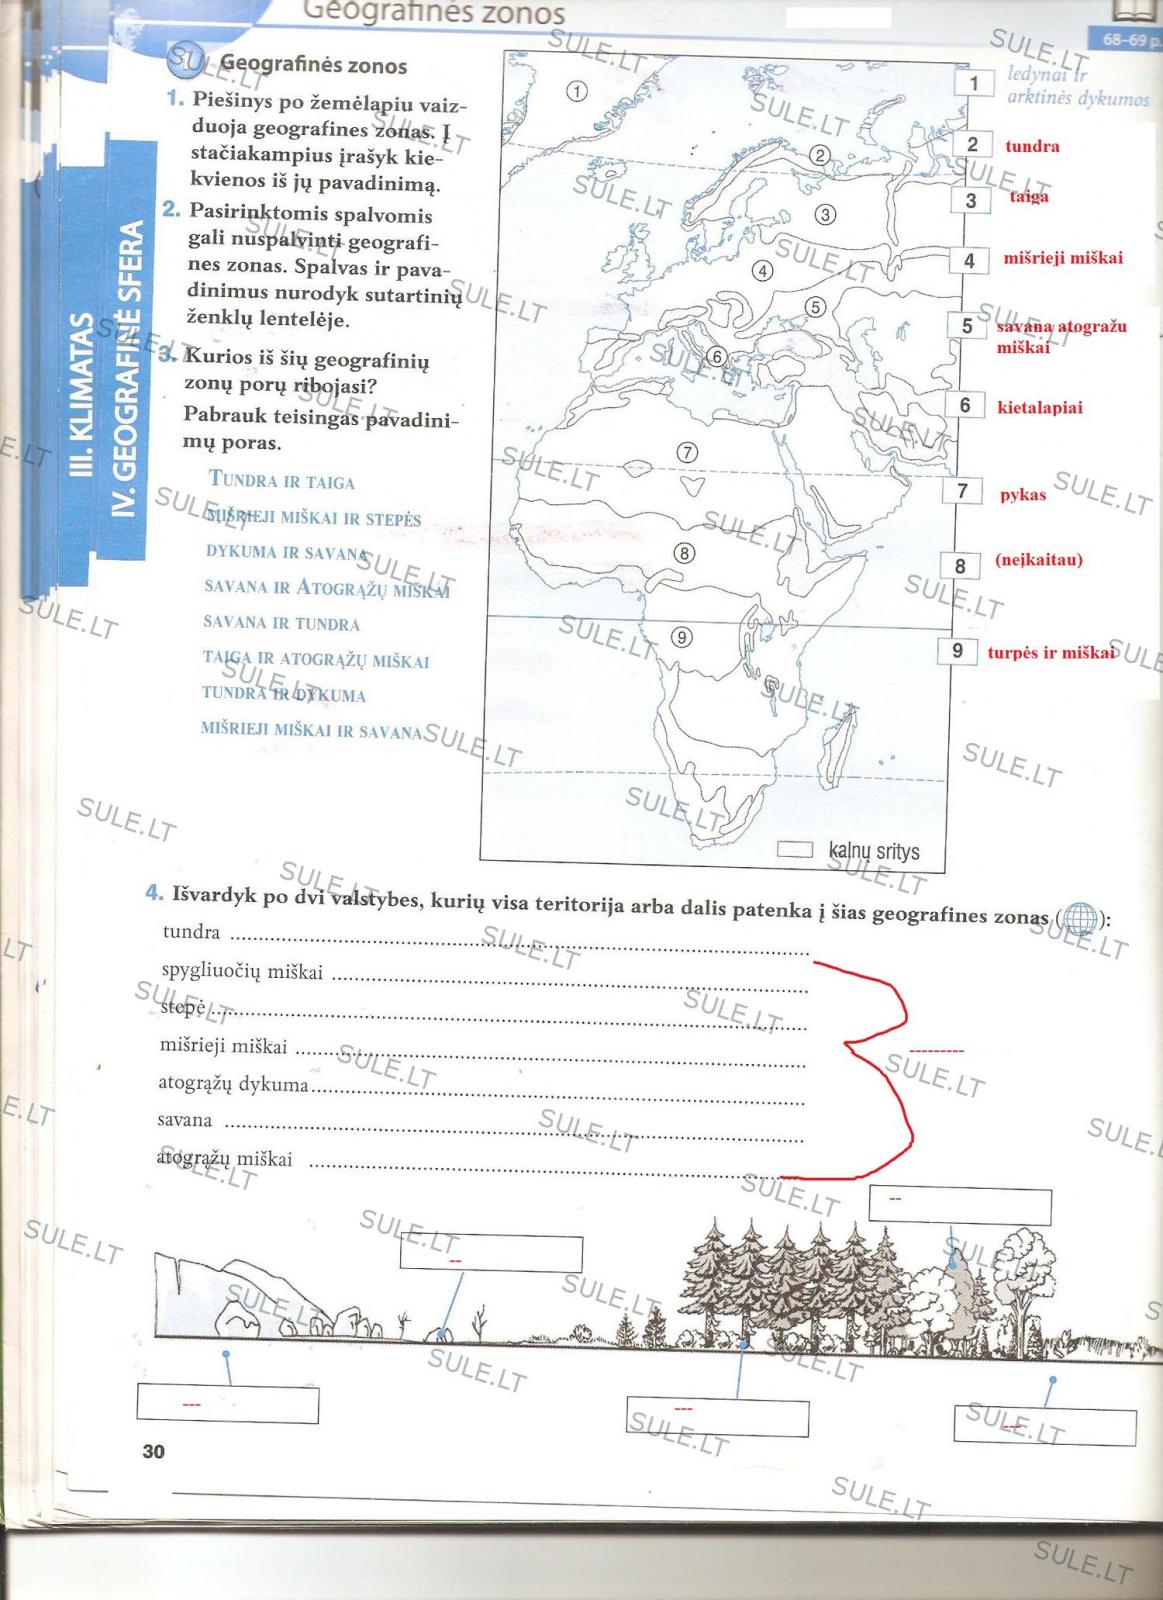 Geografinės zonos
68–69 p.
III. KLIMATAS
IV. GEOGRAFINĖ SFERA
1 Geografinės zonos
1. Piešinys po žemėlapiu vaiz-
duoja geografines zonas. Į
stačiakampius įrašyk kie-
kvienos iš jų pavadinimą.
2. Pasirinktomis spalvomis
gali nuspalvinti geografi-
nes zonas. Spalvas ir pava-
dinimus nurodyk sutartinių
ženklų lentelėje.
3. Kurios iš šių geografinių
zonų porų ribojasi?
Pabrauk teisingas pavadini-
mų poras.
TUNDRA IR TAIGA
MIŠRIEJI MIŠKAI IR STEPĖS
DYKUMA IR SAVANA
SAVANA IR ATOGRĄŽŲ MIŠKAI
SAVANA IR TUNDRA
TAIGA IR ATOGRĄŽŲ MIŠKAI
TUNDRA IR DYKUMA
MIŠRIEJI MIŠKAI IR SAVANA
1
2
3
4
5
6
7
8
9
kalnų sritys
1 ledynai ir
arktinės dykumos
2 tundra
3 taiga
4 mišrieji miškai
5 savana atogražu
miškai
6 kietalapiai
7 pykas
8 (neįkaitau)
9 turpės ir miškai
4. Išvardyk po dvi valstybes, kurių visa teritorija arba dalis patenka į šias geografines zonas ( ):
tundra
spygliuočių miškai
stepė
mišrieji miškai
atogrąžų dykuma
savana
atogrąžų miškai
30
SULE.LT